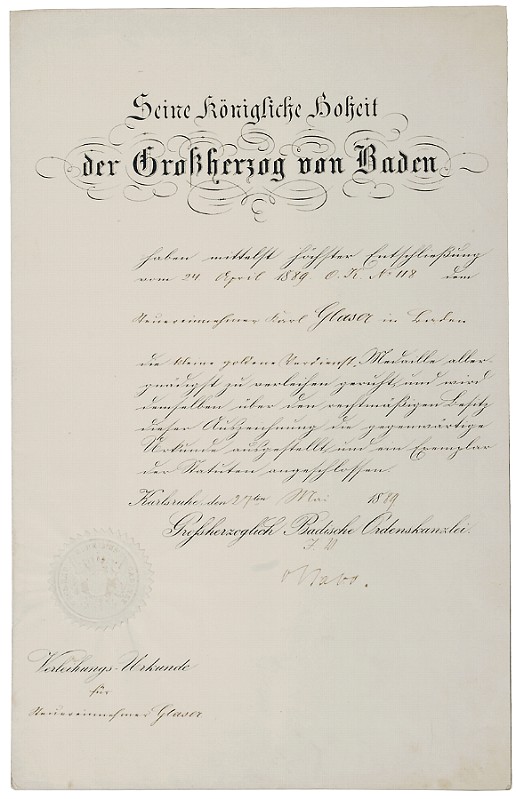 Seine Königliche Hoheit
der Großherzog von Baden
haben mittelst höchster Entschließung
vom 24 April 1889 O. K. No 118 dem
Steuereinnehmer Karl Glaser in Baden
die kleine goldene Verdienst-Medaille aller-
gnädigst zu verleihen geruht, und wird
demselben über den rechtmäßigen Besitz
dieser Auszeichnung die gegenwärtige
Urkunde ausgestellt und ein Exemplar
der Statuten angeschlossen.
Karlsruhe, den 27ten Mai 1889
Großherzoglich Badische Ordenskanzlei.
Verleihungs-Urkunde
für
Steuereinnehmer Glaser